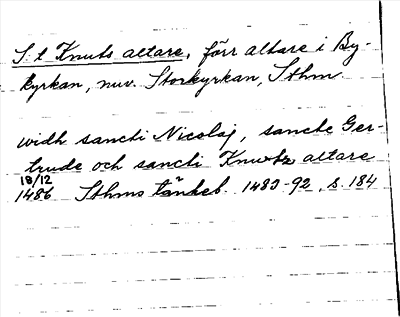 S:t Knuts altare, förr altare i By-
kyrkan, nuv. Storkyrkan, Sthm
widh sancti Nicolaj, sancte Ger-
trude och sancti Knwtz altare
18/12
1486 Sthms tänkeb. 1483-92, s. 184